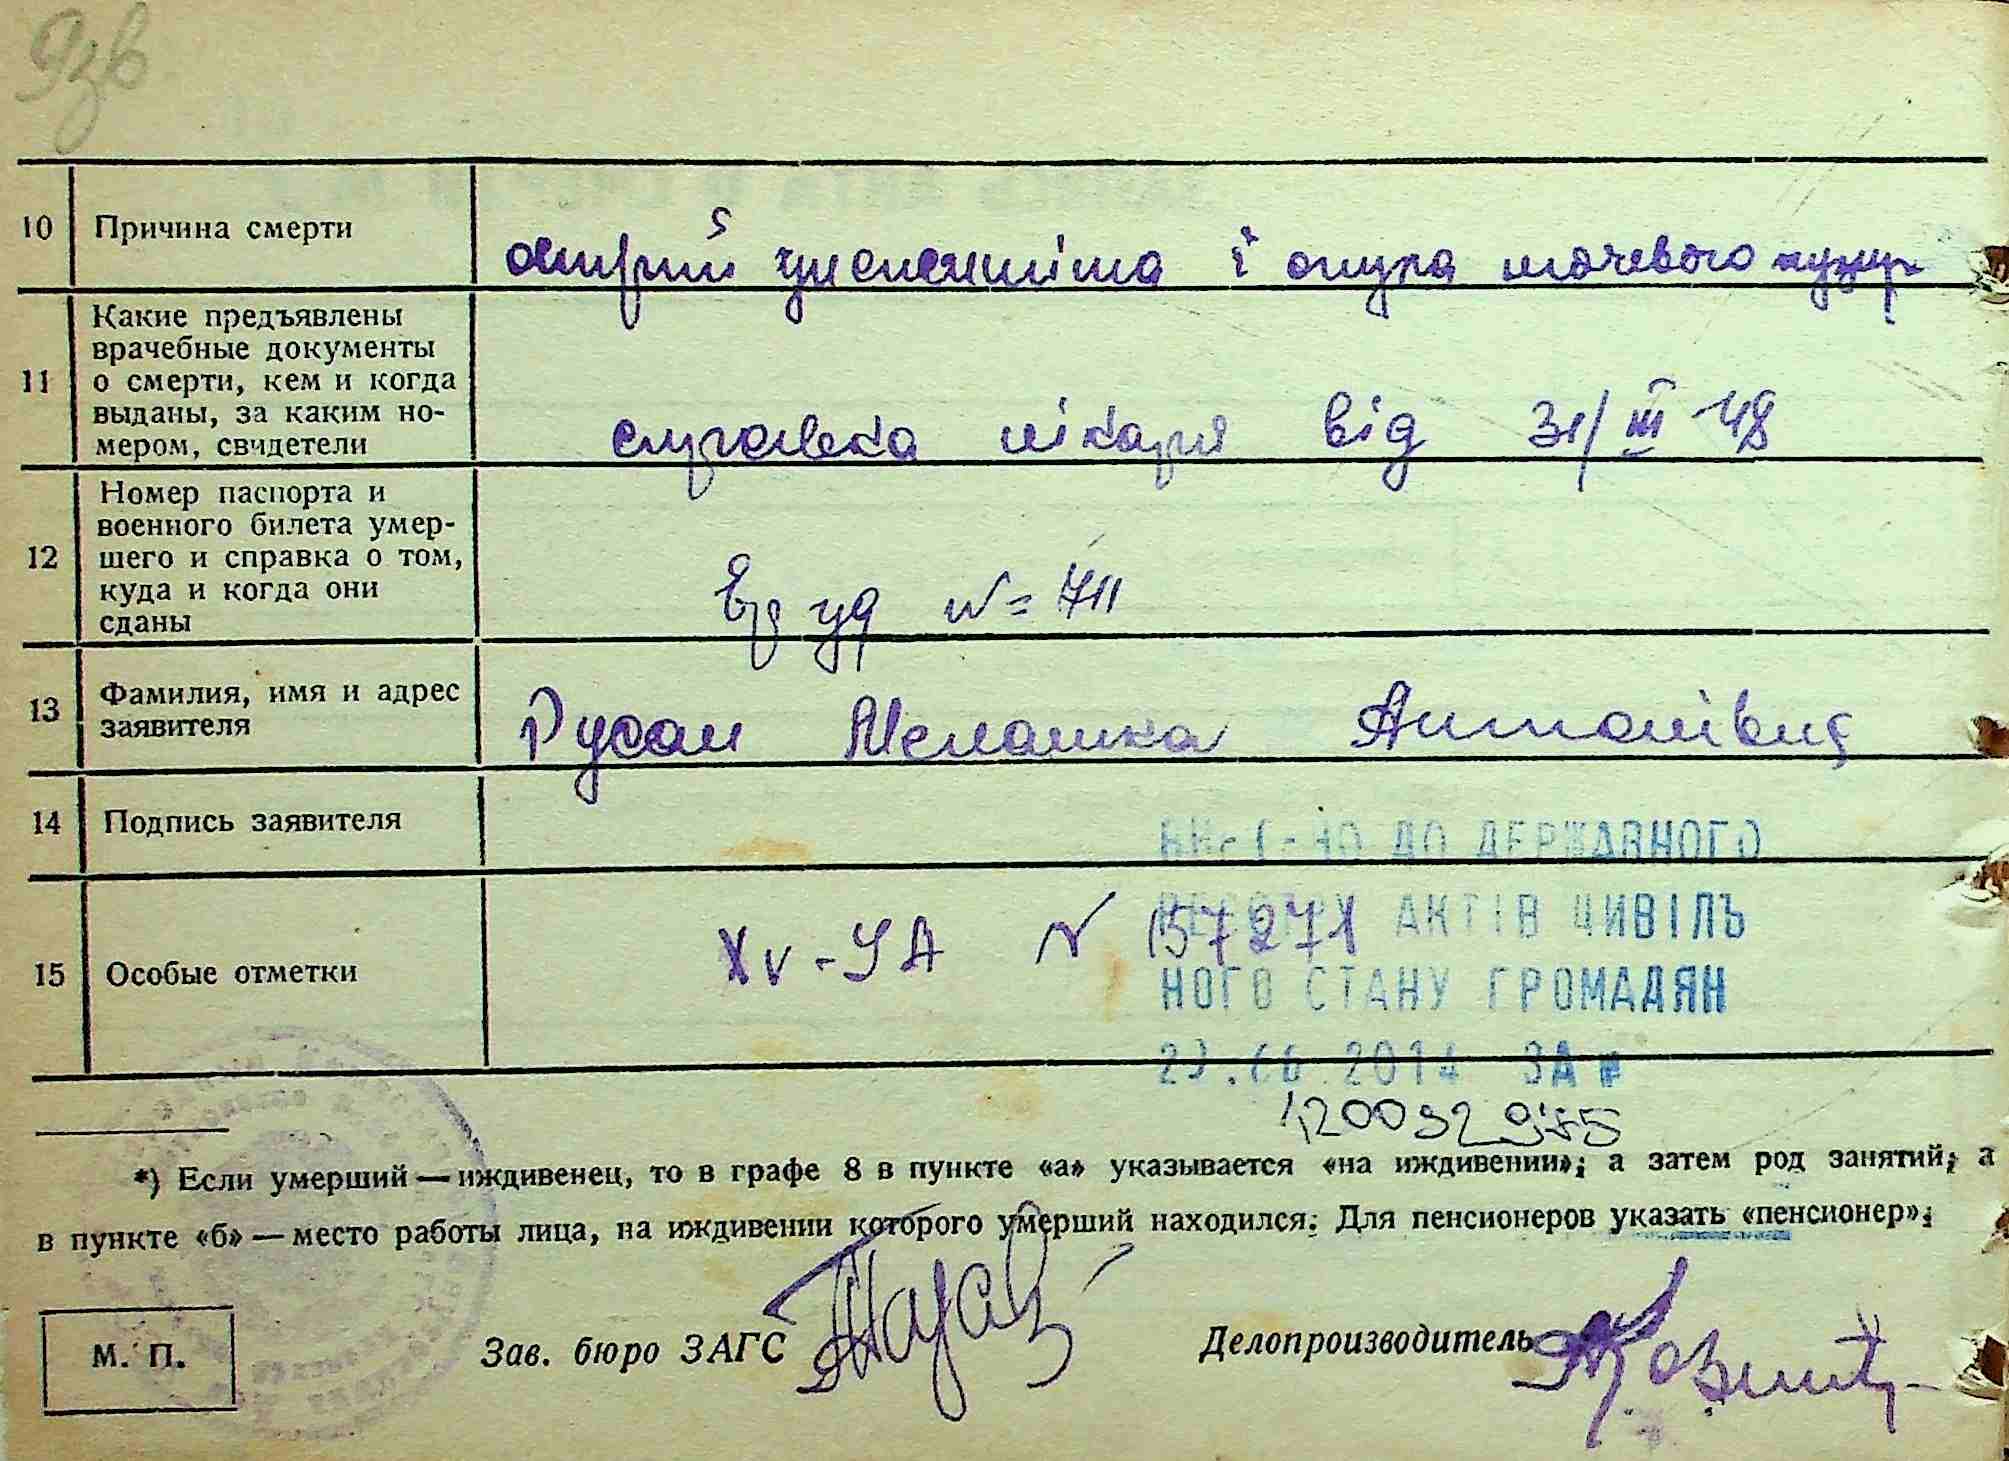 10 Причина смерти
острий і опура мочевого пузиря
11 Какие предъявлены врачебные документы о смерти, кем и когда выданы, за каким но-
мером, свидетели
справка лікаря від 31/III 48
12 Номер паспорта и военного билета умер-
шего и справка о том, куда и когда они сданы
уд № 711
13 Фамилия, имя и адрес заявителя
Русан Мелашка Антонівна
14 Подпись заявителя
ДО ДЕРЖАВНОГО
15 Особые отметки
XV-УА N 157271
АКТІВ ЦИВІЛЬ
НОГО СТАНУ ГРОМАДЯН
2014 ЗА №
*) Если умерший — иждивенец, то в графе 8 в пункте «а» указывается «на иждивении»; а затем род занятий; а
в пункте «б» — место работы лица, на иждивении которого умерший находился. Для пенсионеров указать «пенсионер».
М. П.
Зав. бюро ЗАГС
Делопроизводитель